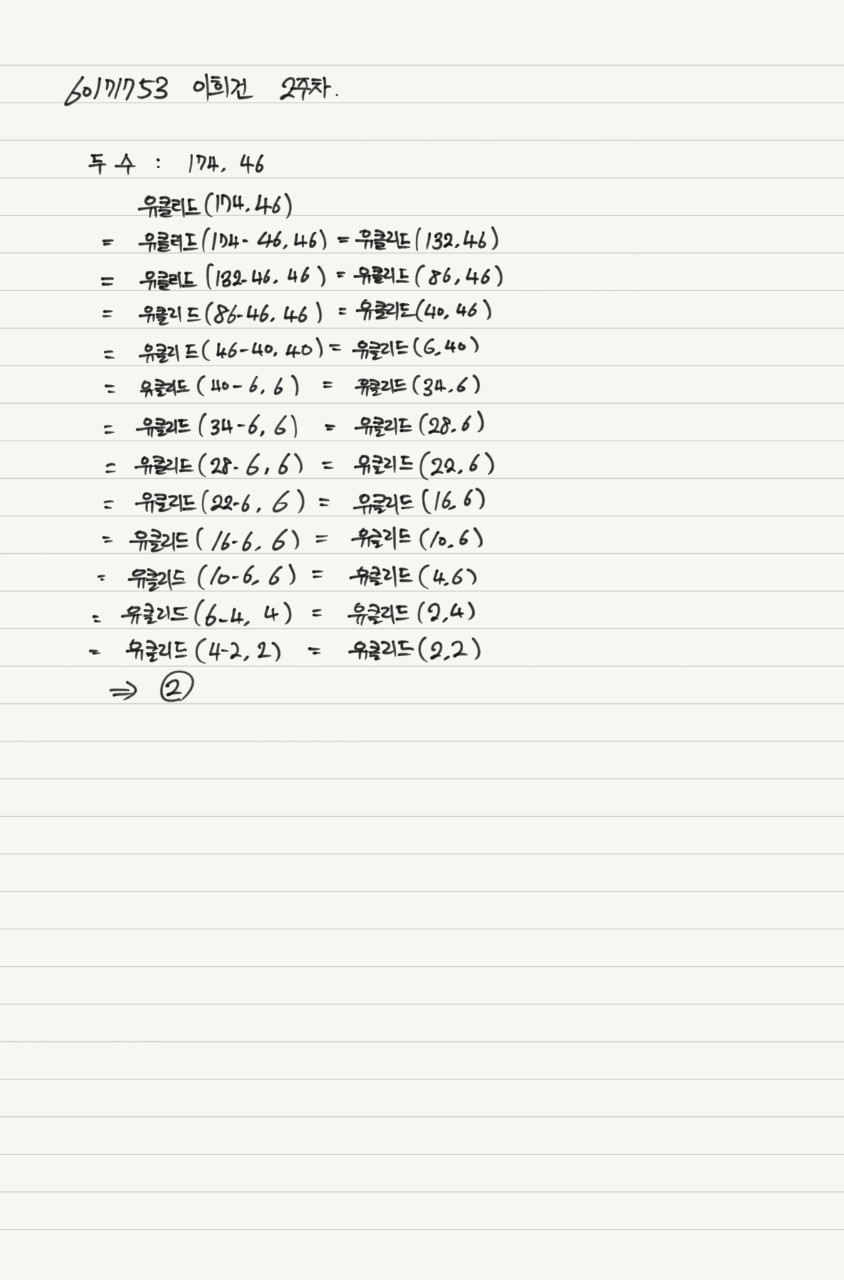 60171753 이희건 2주차.
두 수 : 174, 46
유클리드(174, 46)
= 유클리드(174-46, 46) =유클리드(132, 46)
= 유클리드(132-46, 46) = 유클리드(86, 46)
= 유클리드(86-46, 46) = 유클리드(40, 46)
= 유클리드(46-40, 40) = 유클리드(6, 40)
= 유클리드(40-6, 6) = 유클리드(34, 6)
= 유클리드(34-6, 6) = 유클리드(28, 6)
= 유클리드(28-6, 6) = 유클리드(22, 6)
= 유클리드(22-6, 6) = 유클리드(16, 6)
= 유클리드(16-6, 6) = 유클리드(10, 6)
= 유클리드(10-6, 6) = 유클리드(4, 6)
= 유클리드(6-4, 4) = 유클리드(2, 4)
= 유클리드(4-2, 2) = 유클리드(2, 2)
⇒ ②